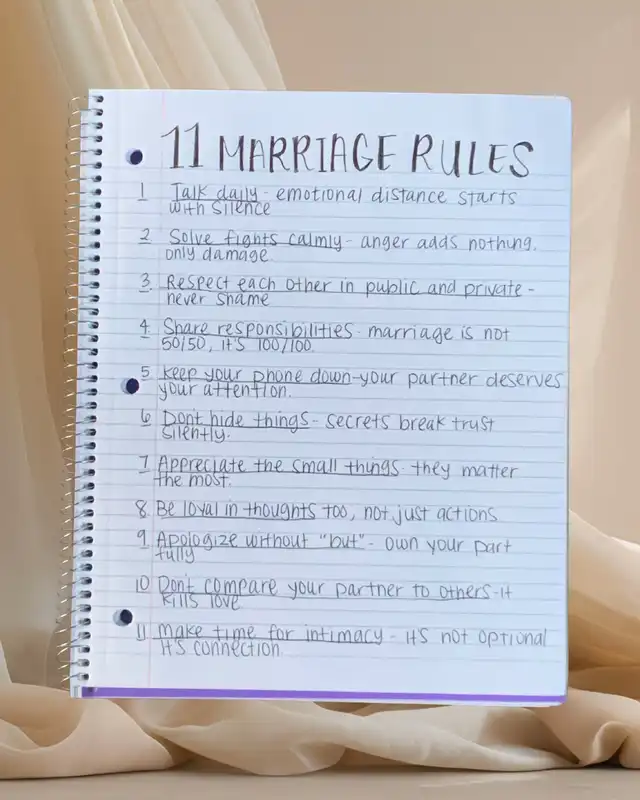 11 MARRIAGE RULES
1 Talk daily - emotional distance starts
with silence
2 Solve fights calmly - anger adds nothing,
only damage
3 Respect each other in public and private -
never shame
4 Share responsibilities - marriage is not
50/50, it's 100/100.
5 Keep your phone down - your partner deserves
your attention.
6 Don't hide things - secrets break trust
silently.
7 Appreciate the small things - they matter
the most.
8 Be loyal in thoughts too, not just actions
9 Apologize without "but" - own your part
fully
10 Don't compare your partner to others - it
kills love
11 Make time for intimacy - it's not optional
it's connection.